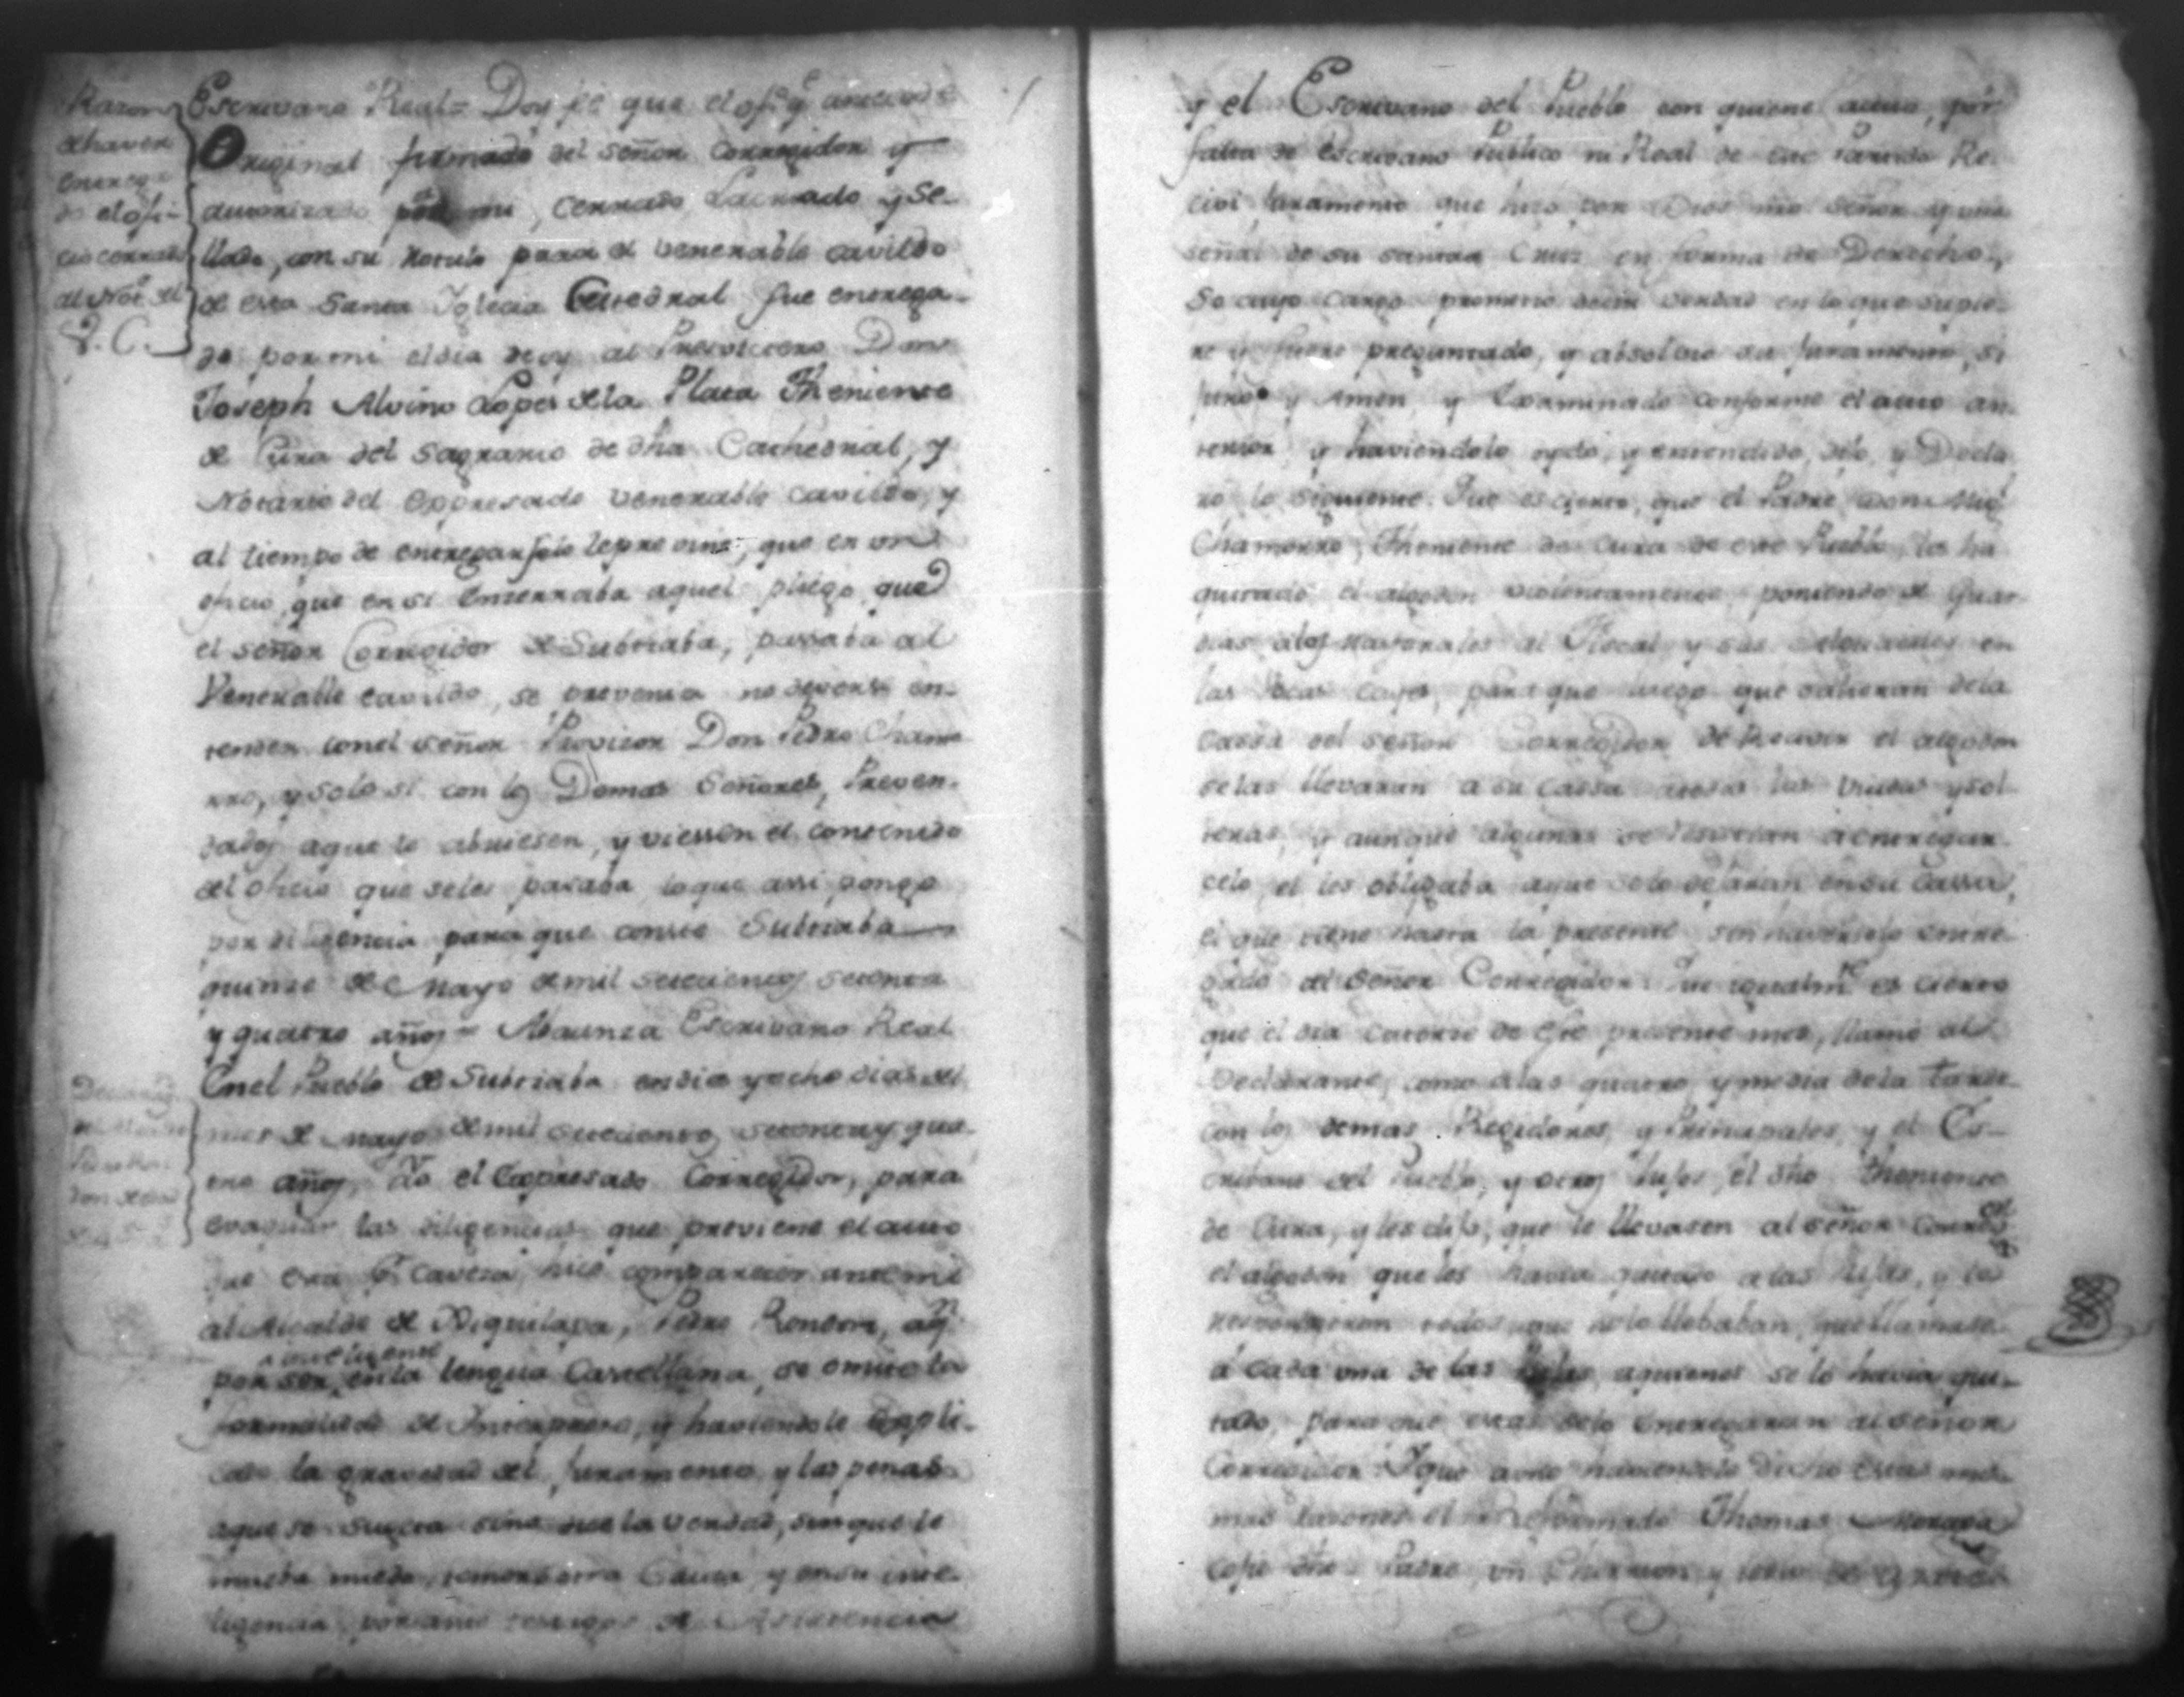 Razon
de haver
entrega-
do el ofi-
cio cerrado
al Not. del
V. C.
Escrivano Real = Doy fe que el ofº qᵉ antecede
Original firmado del señor Corregidor y
autorizado por mi, cerrado Lacrado y se-
llado, con su Rotulo para el venerable cavildo
de esta Santa Iglecia Cathedral fue entrega-
do por mi el dia de oy al Presvictero Don
Joseph Alvino Lopes de la Plata Theniente
de Cura del Sagrario de dha Cathedral, y
Notario del expresado venerable cavildo, y
al tiempo de entregarselo le previne, que en un
oficio, que en si enserraba aquel pliego, que
el señor Corregidor de Subtiaba, pasaba al
Venerable cavildo, se prevenia no deverse en-
tender con el señor Provizor Don Pedro Chamo-
rro, y solo si con los Demas Señores, Preven-
dados a que le abriesen, y viessen el contenido
del oficio que se les pasaba lo que assi pongo
por diligencia para que conste Subtiaba
quinse de Mayo de mil setecientos setenta
y quatro años = Abaunza Escrivano Real
En el Pueblo de Subtiaba en dies y ocho dias del
mes de Mayo de mil setecientos setenta y qua-
tro años, Yo el Expresado Corregidor, para
evaquar las diligencias que previene el auto
que esta pʳ Cavesa hise comparecer ante mi
al Alcalde de Xiquilapa, Pedro Rondon, aqⁿ
por ser inteligente en la lengua Castellana, se omite la
formalidad de Interprete, y haviendole expli-
cado la gravedad del juramento y las penas
a que se sugeta sino dise la verdad, sin que le
mueba miedo, temor u otra Causa y en su inte-
ligencia, por ante testigos de Asistencia
y el Escrivano del Pueblo con quiene actuo, por
falta de Escrivano Publico ni Real de este Partido Re-
civi juramento que hiso por Dios nro Señor y una
señal de su santa Cruz en forma de Derecho,
so cuyo cargo prometio decir verdad en lo que supie-
re y fuere preguntado, y absolvio su juramento, si
juro y Amen, y Examinado conforme el auto an-
terior y haviendolo oydo, y entendido, dijo, y Decla-
ro lo siguiente. Que es cierto, que el Padre Don Migˡ
Chamorro, Theniente de Cura de este Pueblo, les ha
quitado el algodon violentamente, poniendo de Guar-
dias a los Mayorales al Fiscal y sus Alguaciles en
las Bocas Cayes, para que luego que salieran de la
Cassa del señor Corregidor de Recivir el algodon
se las llevaran a su Cassa a todas las Viudas y sol-
teras, y aunque algunas se resistian a entregar-
celo, el les obligaba a que se lo dejaran en su Cassa,
el que tiene hasta la presente sin haverselo entre-
gado al señor Corregidor. Que igualmᵗᵉ es cierto
que el dia catorse de este presente mes, llamó al
Declarante, como a las quatro y media de la tarde
con los demas Regidores, y Prinsipales, y el Es-
cribano del Pueblo, y otros hijos, el dho Theniente
de Cura, y les dijo, que le llevasen al señor Corregᵒʳ
el algodon que les havia quitado a las hijas, y le
respondieron todos que no lo llebaban, que llamase
á cada una de las hijas, a quienes se lo havia qui-
tado, para que estas se lo entregaran al señor
Corregidor. Y que a vno haviendole dicho estas mis-
mas rasones el Reformado Thomas
cojio dho Padre, un